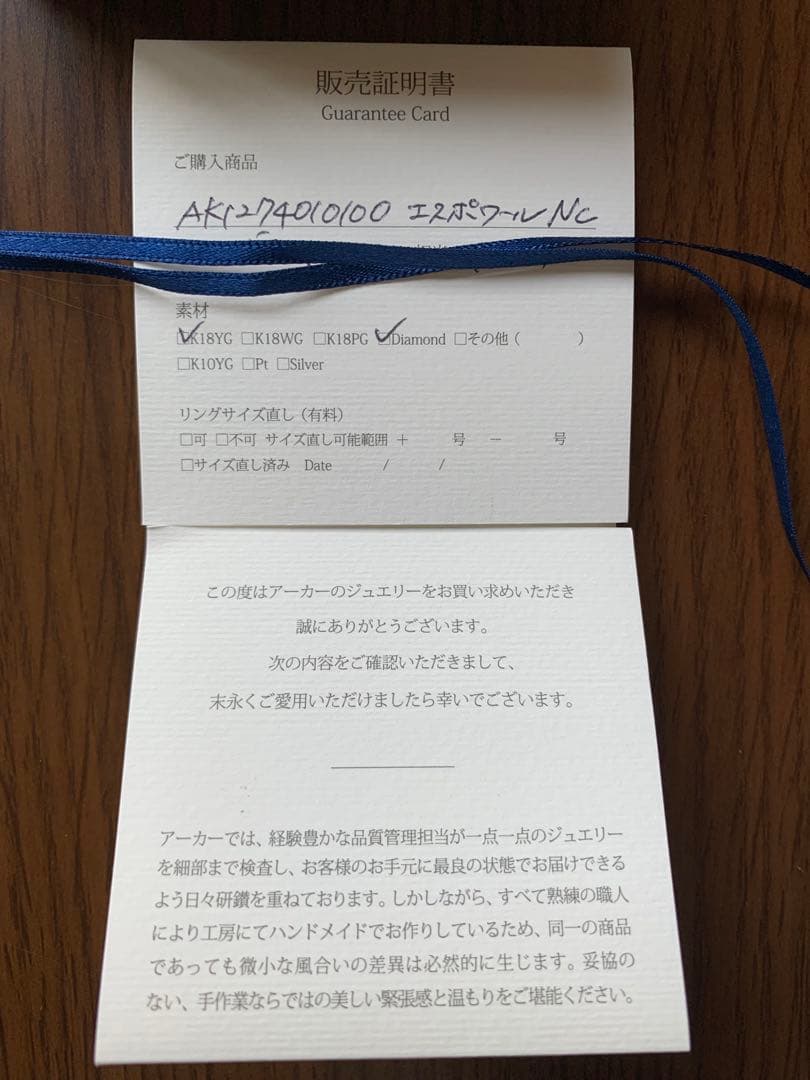 販売証明書
Guarantee Card
ご購入商品
AK1274010100 エスポワールNC
素材
☑K18YG □K18WG □K18PG ☑Diamond □その他（　　　）
□K10YG □Pt □Silver
リングサイズ直し（有料）
□可 □不可 サイズ直し可能範囲 ＋　　号　－　　号
□サイズ直し済み　Date　　/　　/
この度はアーカーのジュエリーをお買い求めいただき
誠にありがとうございます。
次の内容をご確認いただきまして、
末永くご愛用いただけましたら幸いでございます。
アーカーでは、経験豊かな品質管理担当が一点一点のジュエリー
を細部まで検査し、お客様のお手元に最良の状態でお届けできる
よう日々研鑽を重ねております。しかしながら、すべて熟練の職人
により工房にてハンドメイドでお作りしているため、同一の商品
であっても微小な風合いの差異は必然的に生じます。妥協の
ない、手作業ならではの美しい緊張感と温もりをご堪能ください。